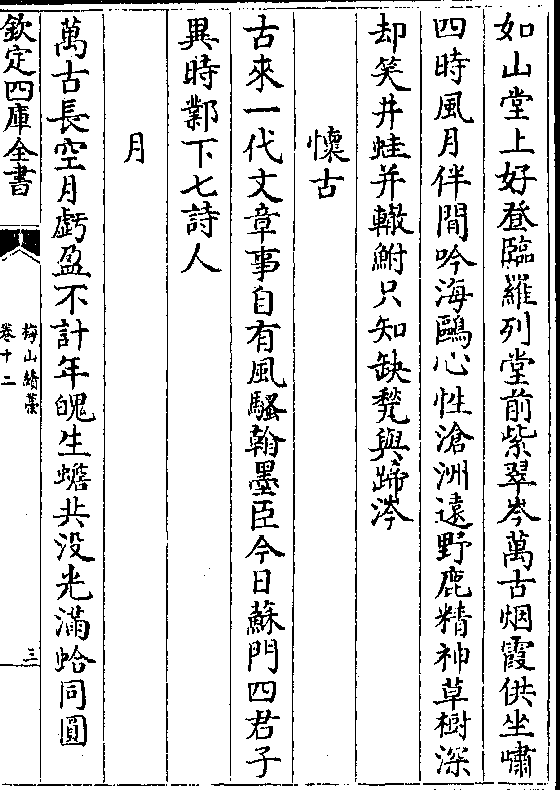 如山堂上好登臨羅列堂前紫翠岑萬古烟霞供坐嘯
四時風月伴閒吟海鷗心性滄洲遠野鹿精神草樹深
却笑井蛙并轍鮒只知缺甃與蹄涔
懷古
古來一代文章事自有風騷翰墨臣今日蘇門四君子
異時鄴下七詩人
月
萬古長空月虧盈不計年魄生蟾共没光滿蛤同圓
欽定四庫全書
梅山續藁
卷十二
三